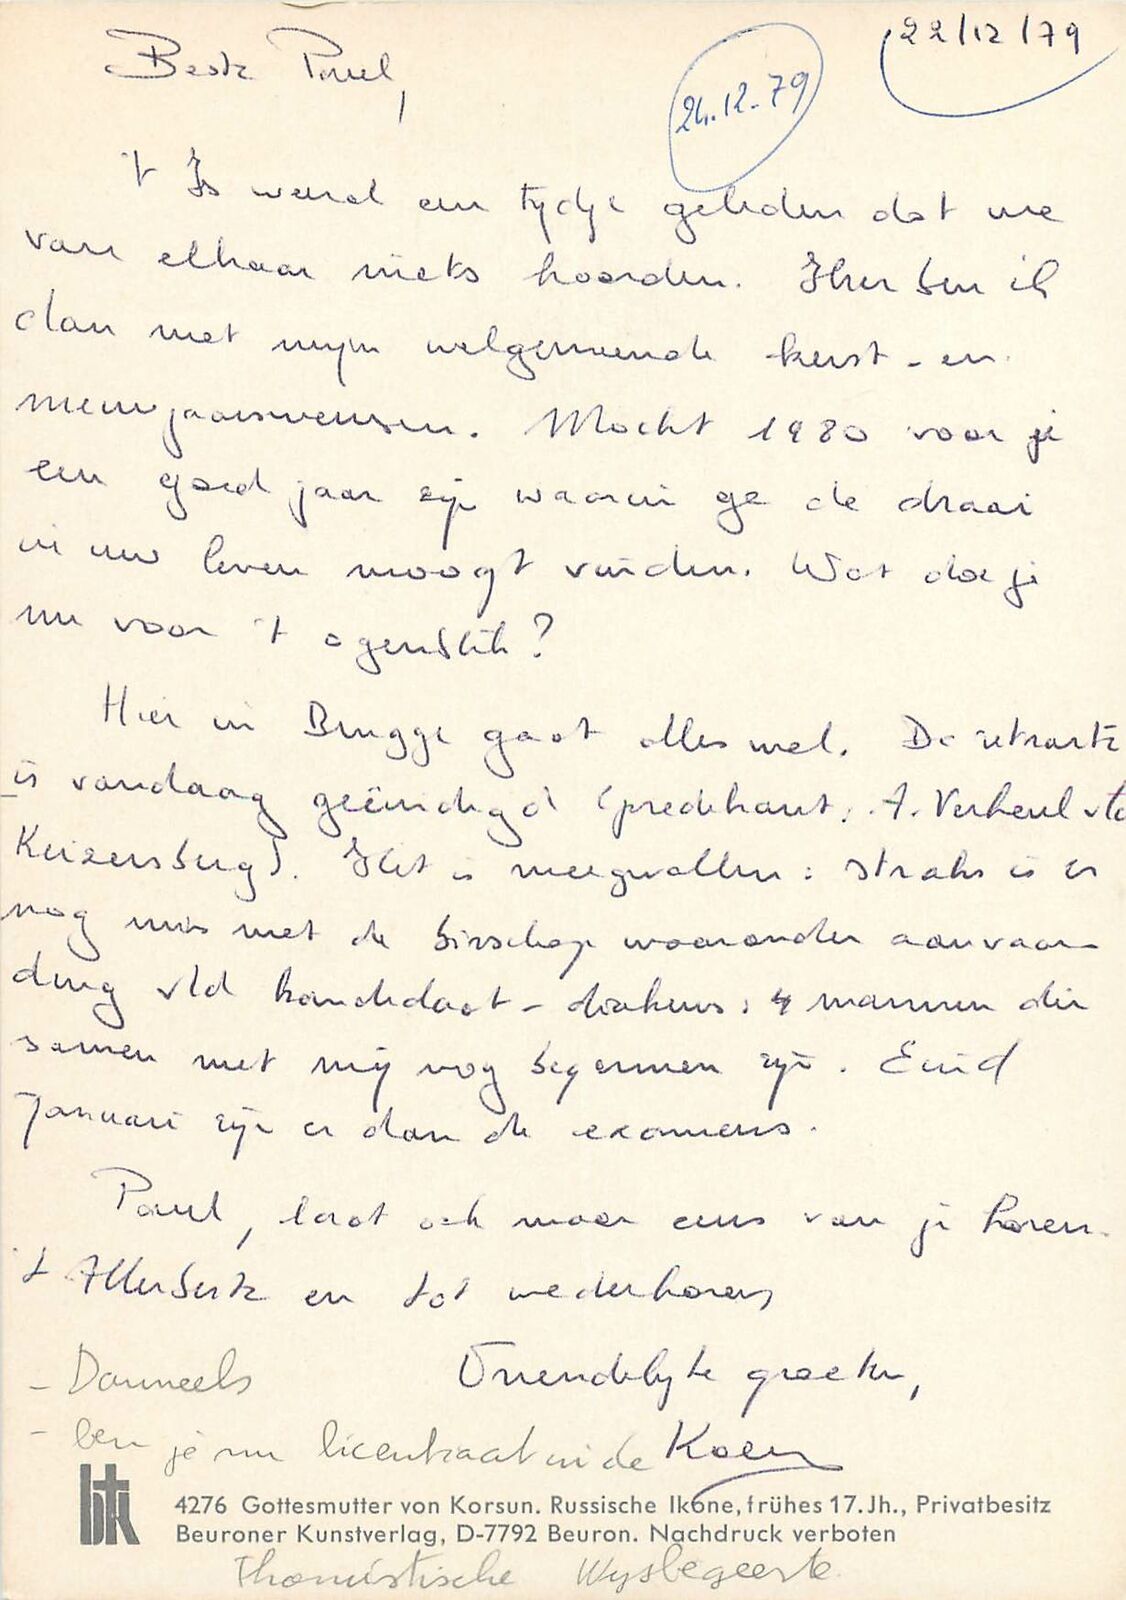 22/12/79
24.12.79
Beste Paul,
't Is weral een tydje geleden dat we
van elkaar niets hoorden. Hier ben ik
dan met mijn welgemeende kerst - en
nieuwjaarswensen. Mocht 1980 voor je
een goed jaar zijn waarin ge de draai
in uw leven moogt vinden. Wat doe je
nu voor 't ogenblik?
Hier in Brugge gaat alles wel. De retraite
is vandaag geëindigd (predikant: A. Verheul vta
Keizersberg). Het is meegevallen: straks is er
nog mis met de bisschop waaronder aanvaar-
ding vld kandidaat-diakens: 4 mannen die
samen met mij nog begonnen zijn. Eind
januari zijn er dan de examens.
Paul, laat ook maar eens van je horen.
't Allerbeste en tot wederhorens
Vriendelijke groeten,
Koen
- Danneels
- ben je nu licentiaat in de
Thomistische Wysbegeerte
4276 Gottesmutter von Korsun. Russische Ikone, frühes 17. Jh., Privatbesitz
Beuroner Kunstverlag, D-7792 Beuron. Nachdruck verboten